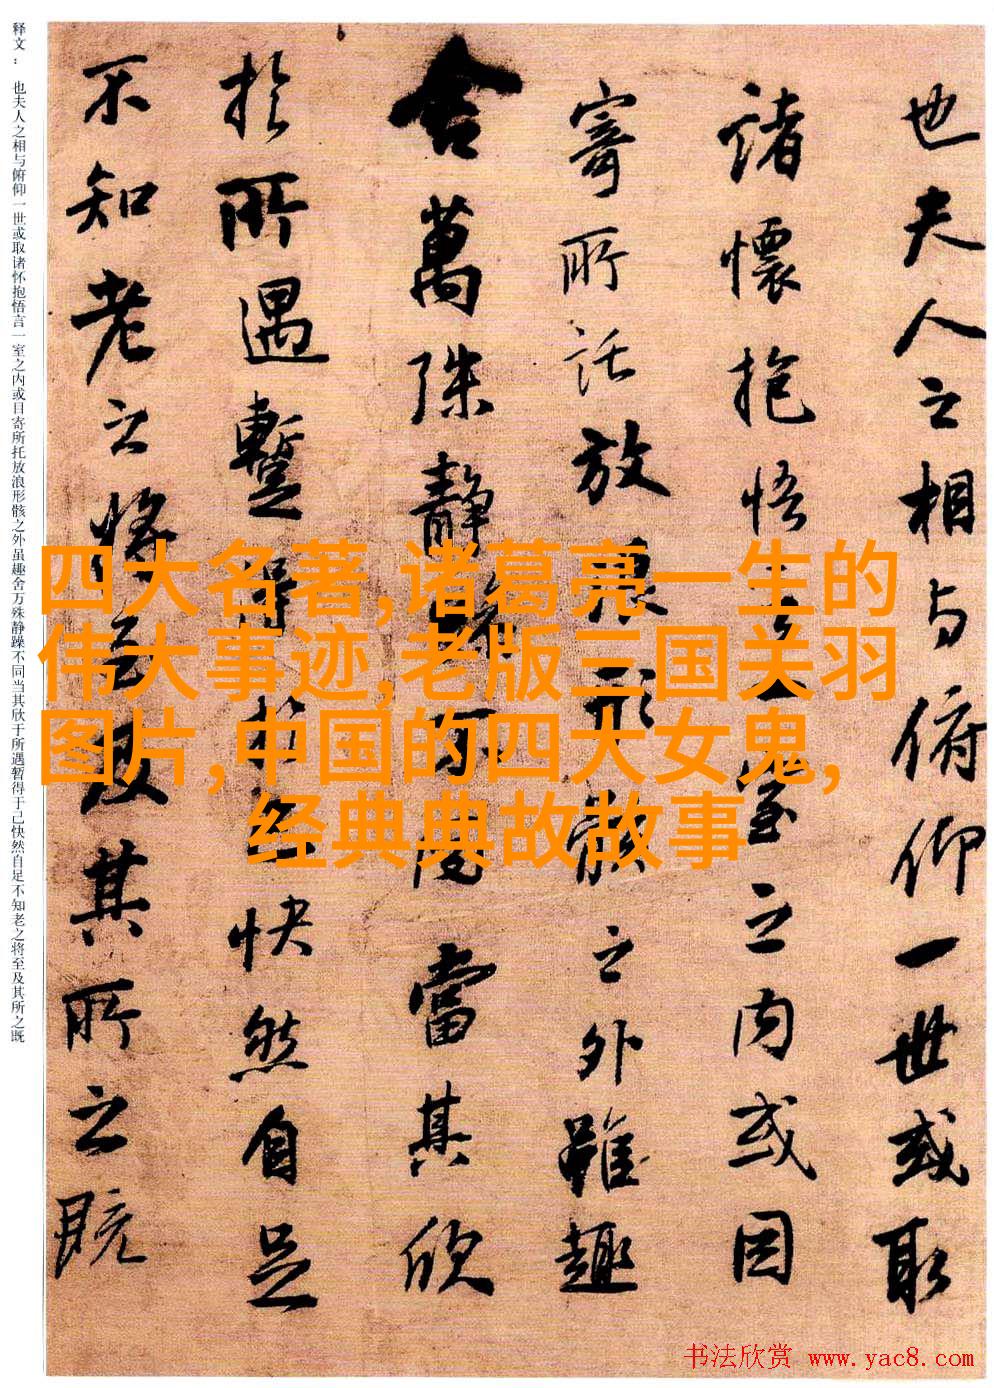 也夫人之相与俯仰一世或取
諸懷抱悟言一室之内或因
寄所託放浪形骸之外雖趣
舍萬殊静躁不同當其欣
於所遇蹔得於己快然自足
不知老之将至及其所之既
释文： 也夫人之相与俯仰一世或取诸怀抱悟言一室之内或目寄所托放浪形骸之外虽趣舍万殊静躁不同当其欣于所遇暂得于己快然自足不知老之将至及其所之既
四大名著,诸葛亮一生的
伟大事迹,老版三国关羽
图片,中国的四大女鬼,
经典典故故事
书法欣赏 www.yac8.com